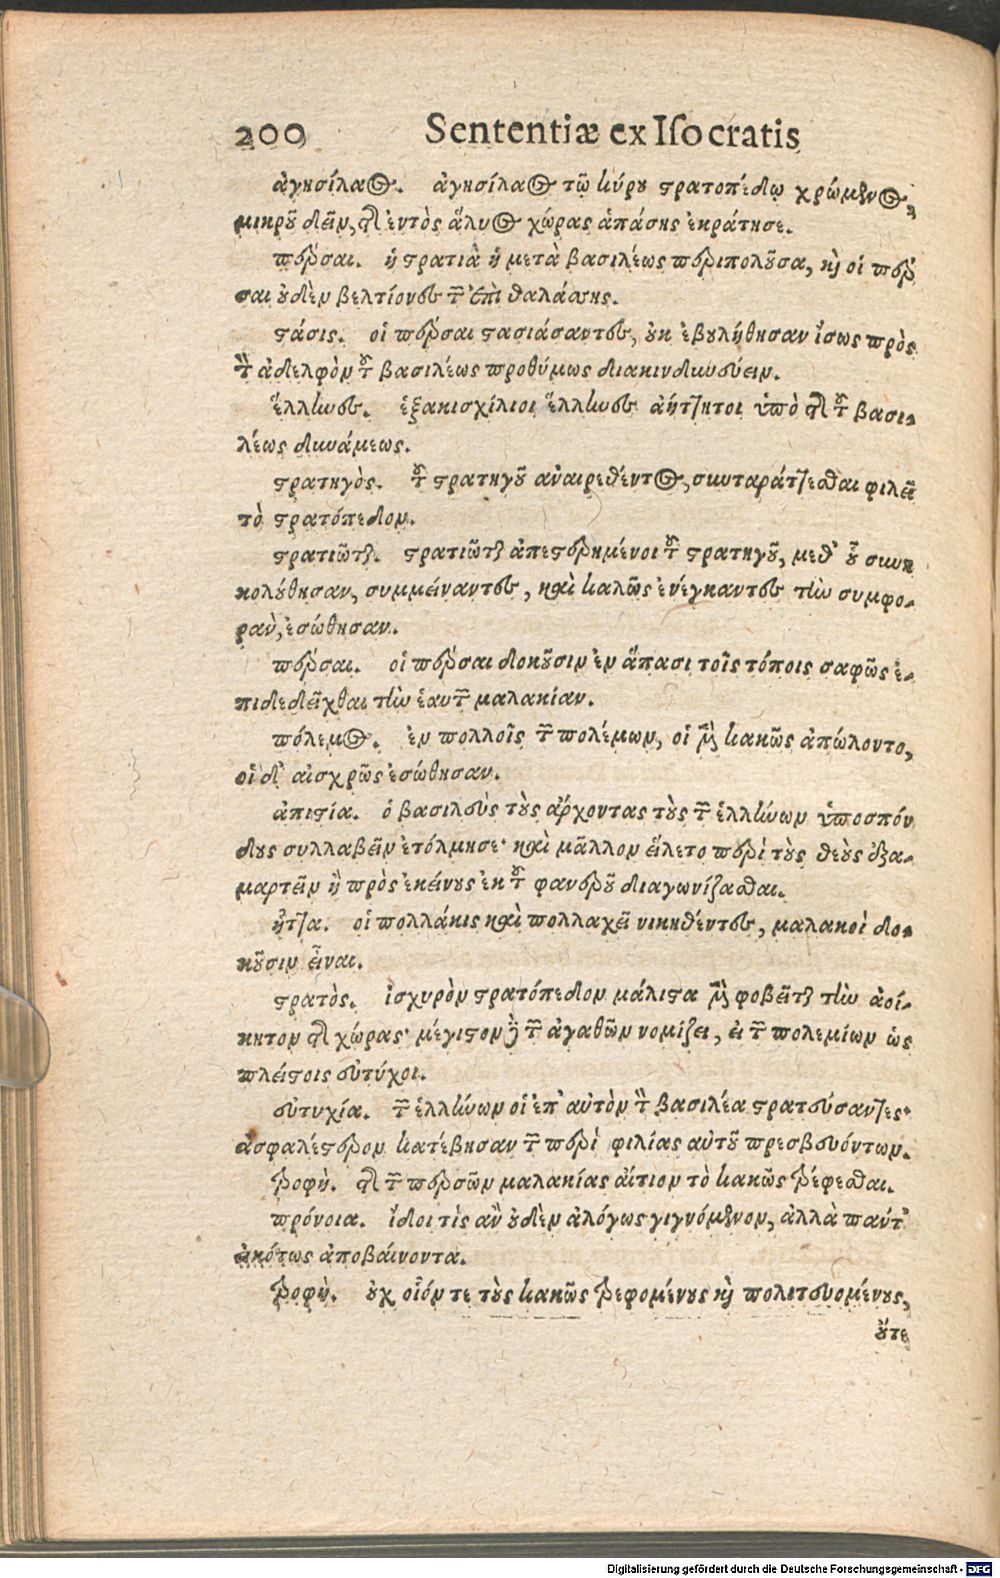 200 Sententiæ ex Iſocratis
ἀγησίλαος. ἀγησίλαος τῷ κύρου στρατοπέδῳ χρώμενος,
μικροῦ δεῖν, τῆς ἐντὸς ἅλυος χώρας ἁπάσης ἐκράτησε.
πέρσαι. ἡ στρατιὰ ἡ μετὰ βασιλέως περιπολοῦσα, καὶ οἱ πέρ
σαι οὐδὲν βελτίονες τῶν ἐπὶ θαλάσσης.
στάσις. οἱ πέρσαι στασιάσαντες, οὐκ ἐβουλήθησαν ἴσως πρὸς
τὸν ἀδελφὸν τοῦ βασιλέως προθύμως διακινδυνεύειν.
ἕλληνες. ἑξακισχίλιοι ἕλληνες ἀήττητοι ὑπὸ τῆς τοῦ βασι-
λέως δυνάμεως.
στρατηγὸς. τοῦ στρατηγοῦ ἀναιρεθέντος, συνταράττεσθαι φιλεῖ
τὸ στρατόπεδον.
στρατιῶται. στρατιῶται ἀπεστερημένοι τοῦ στρατηγοῦ, μεθ' οὗ συνη
κολούθησαν, συμμείναντες, καὶ καλῶς ἐνέγκαντες τὴν συμφο-
ρὰν, ἐσώθησαν.
πέρσαι. οἱ πέρσαι δοκοῦσιν ἐν ἅπασι τοῖς τόποις σαφῶς ἐ-
πιδεδεῖχθαι τὴν ἑαυτῶν μαλακίαν.
πόλεμος. ἐν πολλοῖς τῶν πολέμων, οἱ μὲν κακῶς ἀπώλοντο,
οἱ δ' αἰσχρῶς ἐσώθησαν.
ἀπιστία. ὁ βασιλεὺς τοὺς ἄρχοντας τοὺς τῶν ἑλλήνων ὑποσπόν
δους συλλαβεῖν ἐτόλμησε· καὶ μᾶλλον εἵλετο περὶ τοὺς θεοὺς ἐξα-
μαρτεῖν ἢ πρὸς ἐκείνους ἐκ τοῦ φανεροῦ διαγωνίζασθαι.
ἧττα. οἱ πολλάκις καὶ πολλαχεῖ νικηθέντες, μαλακοὶ δο-
κοῦσιν εἶναι.
στρατὸς. ἰσχυρὸν στρατόπεδον μάλιστα μὲν φοβεῖται τὴν ἀοί-
κητον τῆς χώρας· μέγιστον δὲ τῶν ἀγαθῶν νομίζει, εἰ τῶν πολεμίων ὡς
πλείστοις εὐτύχοι.
εὐτυχία. τῶν ἑλλήνων οἱ ἐπ' αὐτὸν τὸν βασιλέα στρατεύσαντες·
ἀσφαλέστερον κατέβησαν τῶν περὶ φιλίας αὐτοῦ πρεσβευόντων.
τροφὴ. τῆς τῶν περσῶν μαλακίας αἴτιον τὸ κακῶς τρέφεσθαι.
πρόνοια. ἴδοι τὶς ἂν οὐδὲν ἀλόγως γιγνόμενον, ἀλλὰ πάντ'
εἰκότως ἀποβαίνοντα.
τροφὴ. οὐχ οἷόν τε τοὺς κακῶς τρεφομένους καὶ πολιτευομένους,
οὔτε
Digitalisierung gefördert durch die Deutsche Forschungsgemeinschaft - DFG